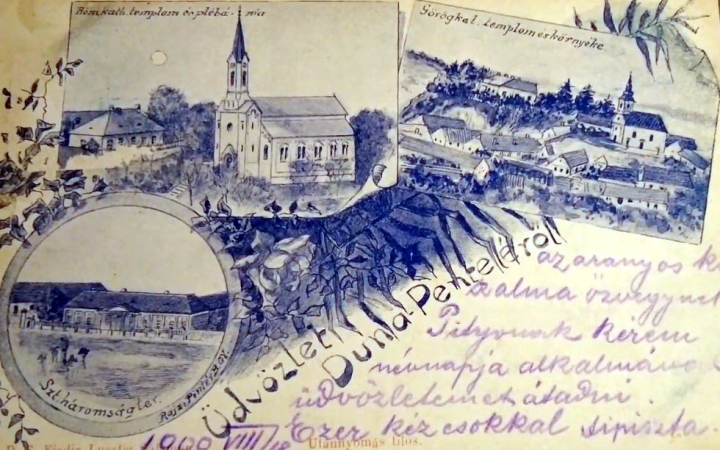 Róm. kath. templom és plébánia
Görögkel. templom és környéke.
Szt háromságtér.
Rajz. Pintér
Üdvözlet
Duna-Penteléről
az aranyos
özvegynek
kérem
névnapja alkalmával
üdvözletemet átadni.
Ezer kéz csókkal
1900 VIII/18
Utánnyomás tilos.